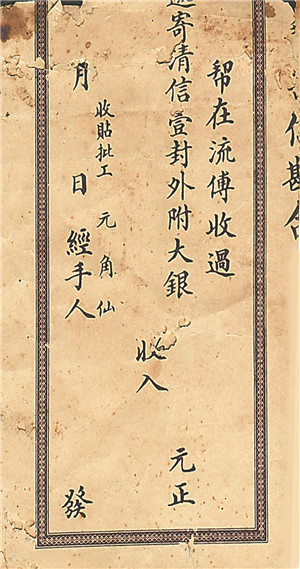 信勘合
帮在流傅收過
寄清信壹封外附大銀 元正
收入
收貼批工 元角仙
月 日 經手人 發